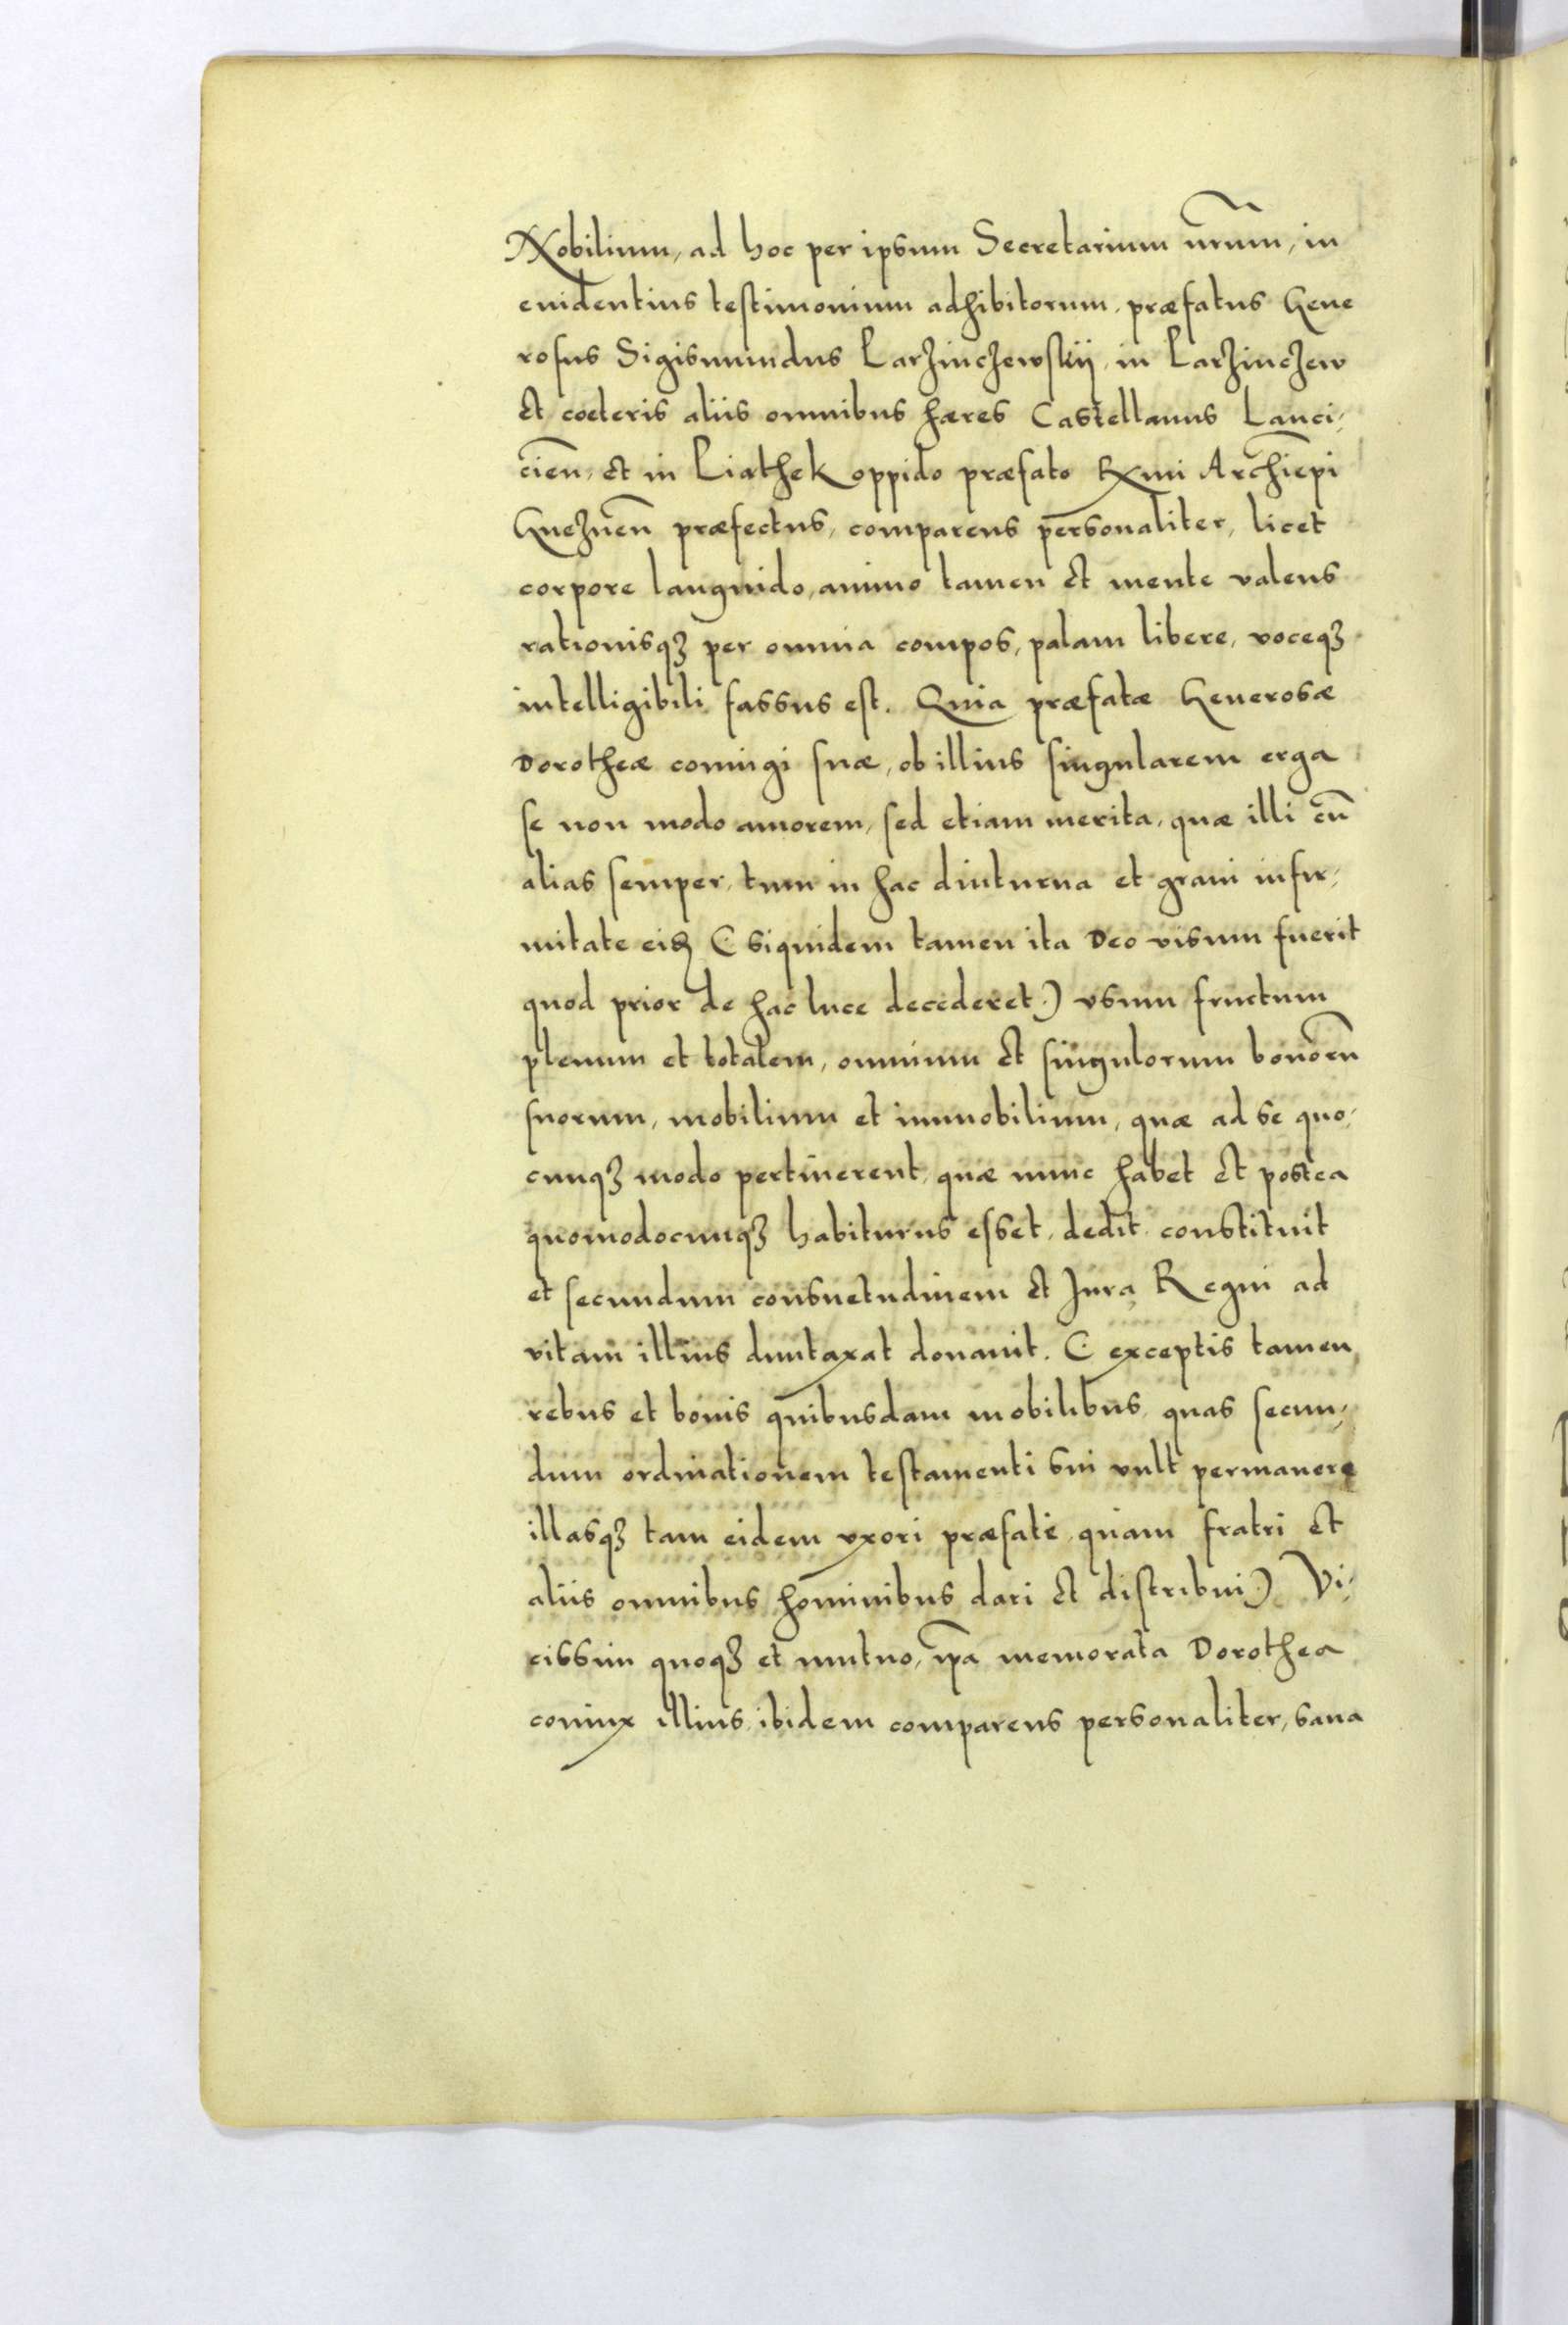 Nobilium, ad hoc per ipsum Secretarium nr̃um, in
euidentius testimonium adhibitorum, præfatus Gene
rosus Sigismundus Larzinczewskij, in Larzinczew
et cœteris aliis omnibus hæres Castellanus Lanci,
cien̄, et in Liathek oppido præfato Rxmi Archiēpi
Gneznen̄ præfectus, comparens personaliter, licet
corpore languido, animo tamen et mente valens
rationisqꝫ per omnia compos, palam libere, voceqꝫ
intelligibili fassus est. Quia præfatæ Generosæ
Dorotheæ coniugi suæ, ob illius singularem erga
se non modo amorem, sed etiam merita, quæ illi cū
alias semper, tum in hac diuturna et graui infir,
mitate eiꝰ (siquidem tamen ita Deo visum fuerit
quod prior de hac luce decederet.) vsum fructum
plenum et totalem, omnium et singulorum bonorū
suorum, mobilium et immobilium, quæ ad se quo,
cunqꝫ modo pertinerent, quæ nunc habet et postea
quomodocunqꝫ habiturus esset, dedit constituit
et secundum consuetudinem et Jura Regni ad
vitam illius duntaxat donauit. (exceptis tamen
rebus et bonis quibusdam mobilibus, quas secun,
dum ordinationem testamenti sui vult permanere
illasqꝫ tam eidem vxori præfatę quam fratri et
aliis omnibus hominibus dari et distribui) Vi,
cissim quoqꝫ et mutuo, ip̄a memorata Dorothea
coniux illius ibidem comparens personaliter, sana